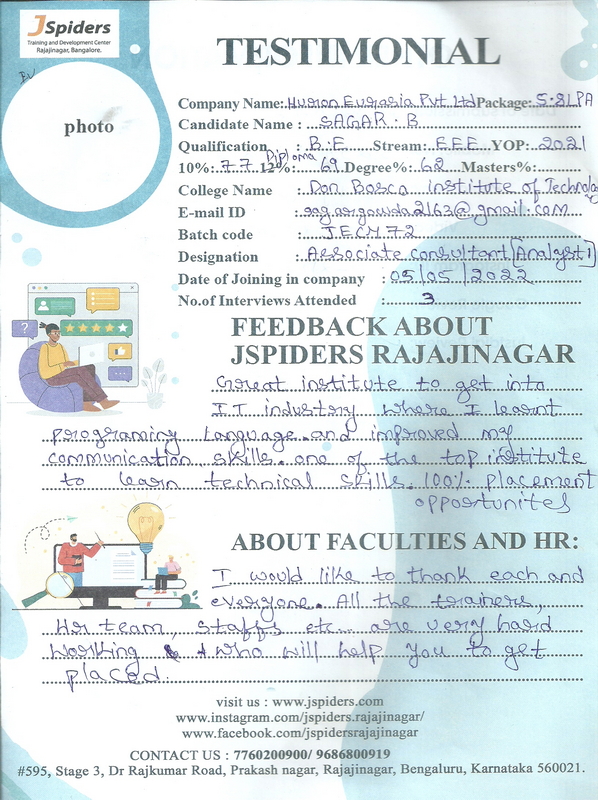 JSpiders
Training and Development Center
Rajajinagar, Bangalore.
TESTIMONIAL
photo
Company Name: Huron Eurasia Pvt Ltd Package: 5.8LPA
Candidate Name : SAGAR. B
Qualification : B.E Stream: EEE YOP: 2021
Diploma
10%: 77 12%: 69 Degree%: 62 Masters%:
College Name : Don Bosco institute of Technology
E-mail ID : sagargowda2163@gmail.com
Batch code : JECM72
Designation : Associate consultant [Analyst 1]
Date of Joining in company : 05/05/2022
No.of Interviews Attended : 3
FEEDBACK ABOUT
JSPIDERS RAJAJINAGAR
Great institute to get into
IT industry where I learnt
programing language and improved my
communication skills. one of the top institute
to learn technical skills. 100% placement
opportunites
ABOUT FACULTIES AND HR:
I would like to thank each and
everyone. All the trainers,
Hr team, staffs etc.. are very hard
working & who will help you to get
placed.
visit us : www.jspiders.com
www.instagram.com/jspiders.rajajinagar/
www.facebook.com/jspidersrajajinagar
CONTACT US : 7760200900/ 9686800919
#595, Stage 3, Dr Rajkumar Road, Prakash nagar, Rajajinagar, Bengaluru, Karnataka 560021.